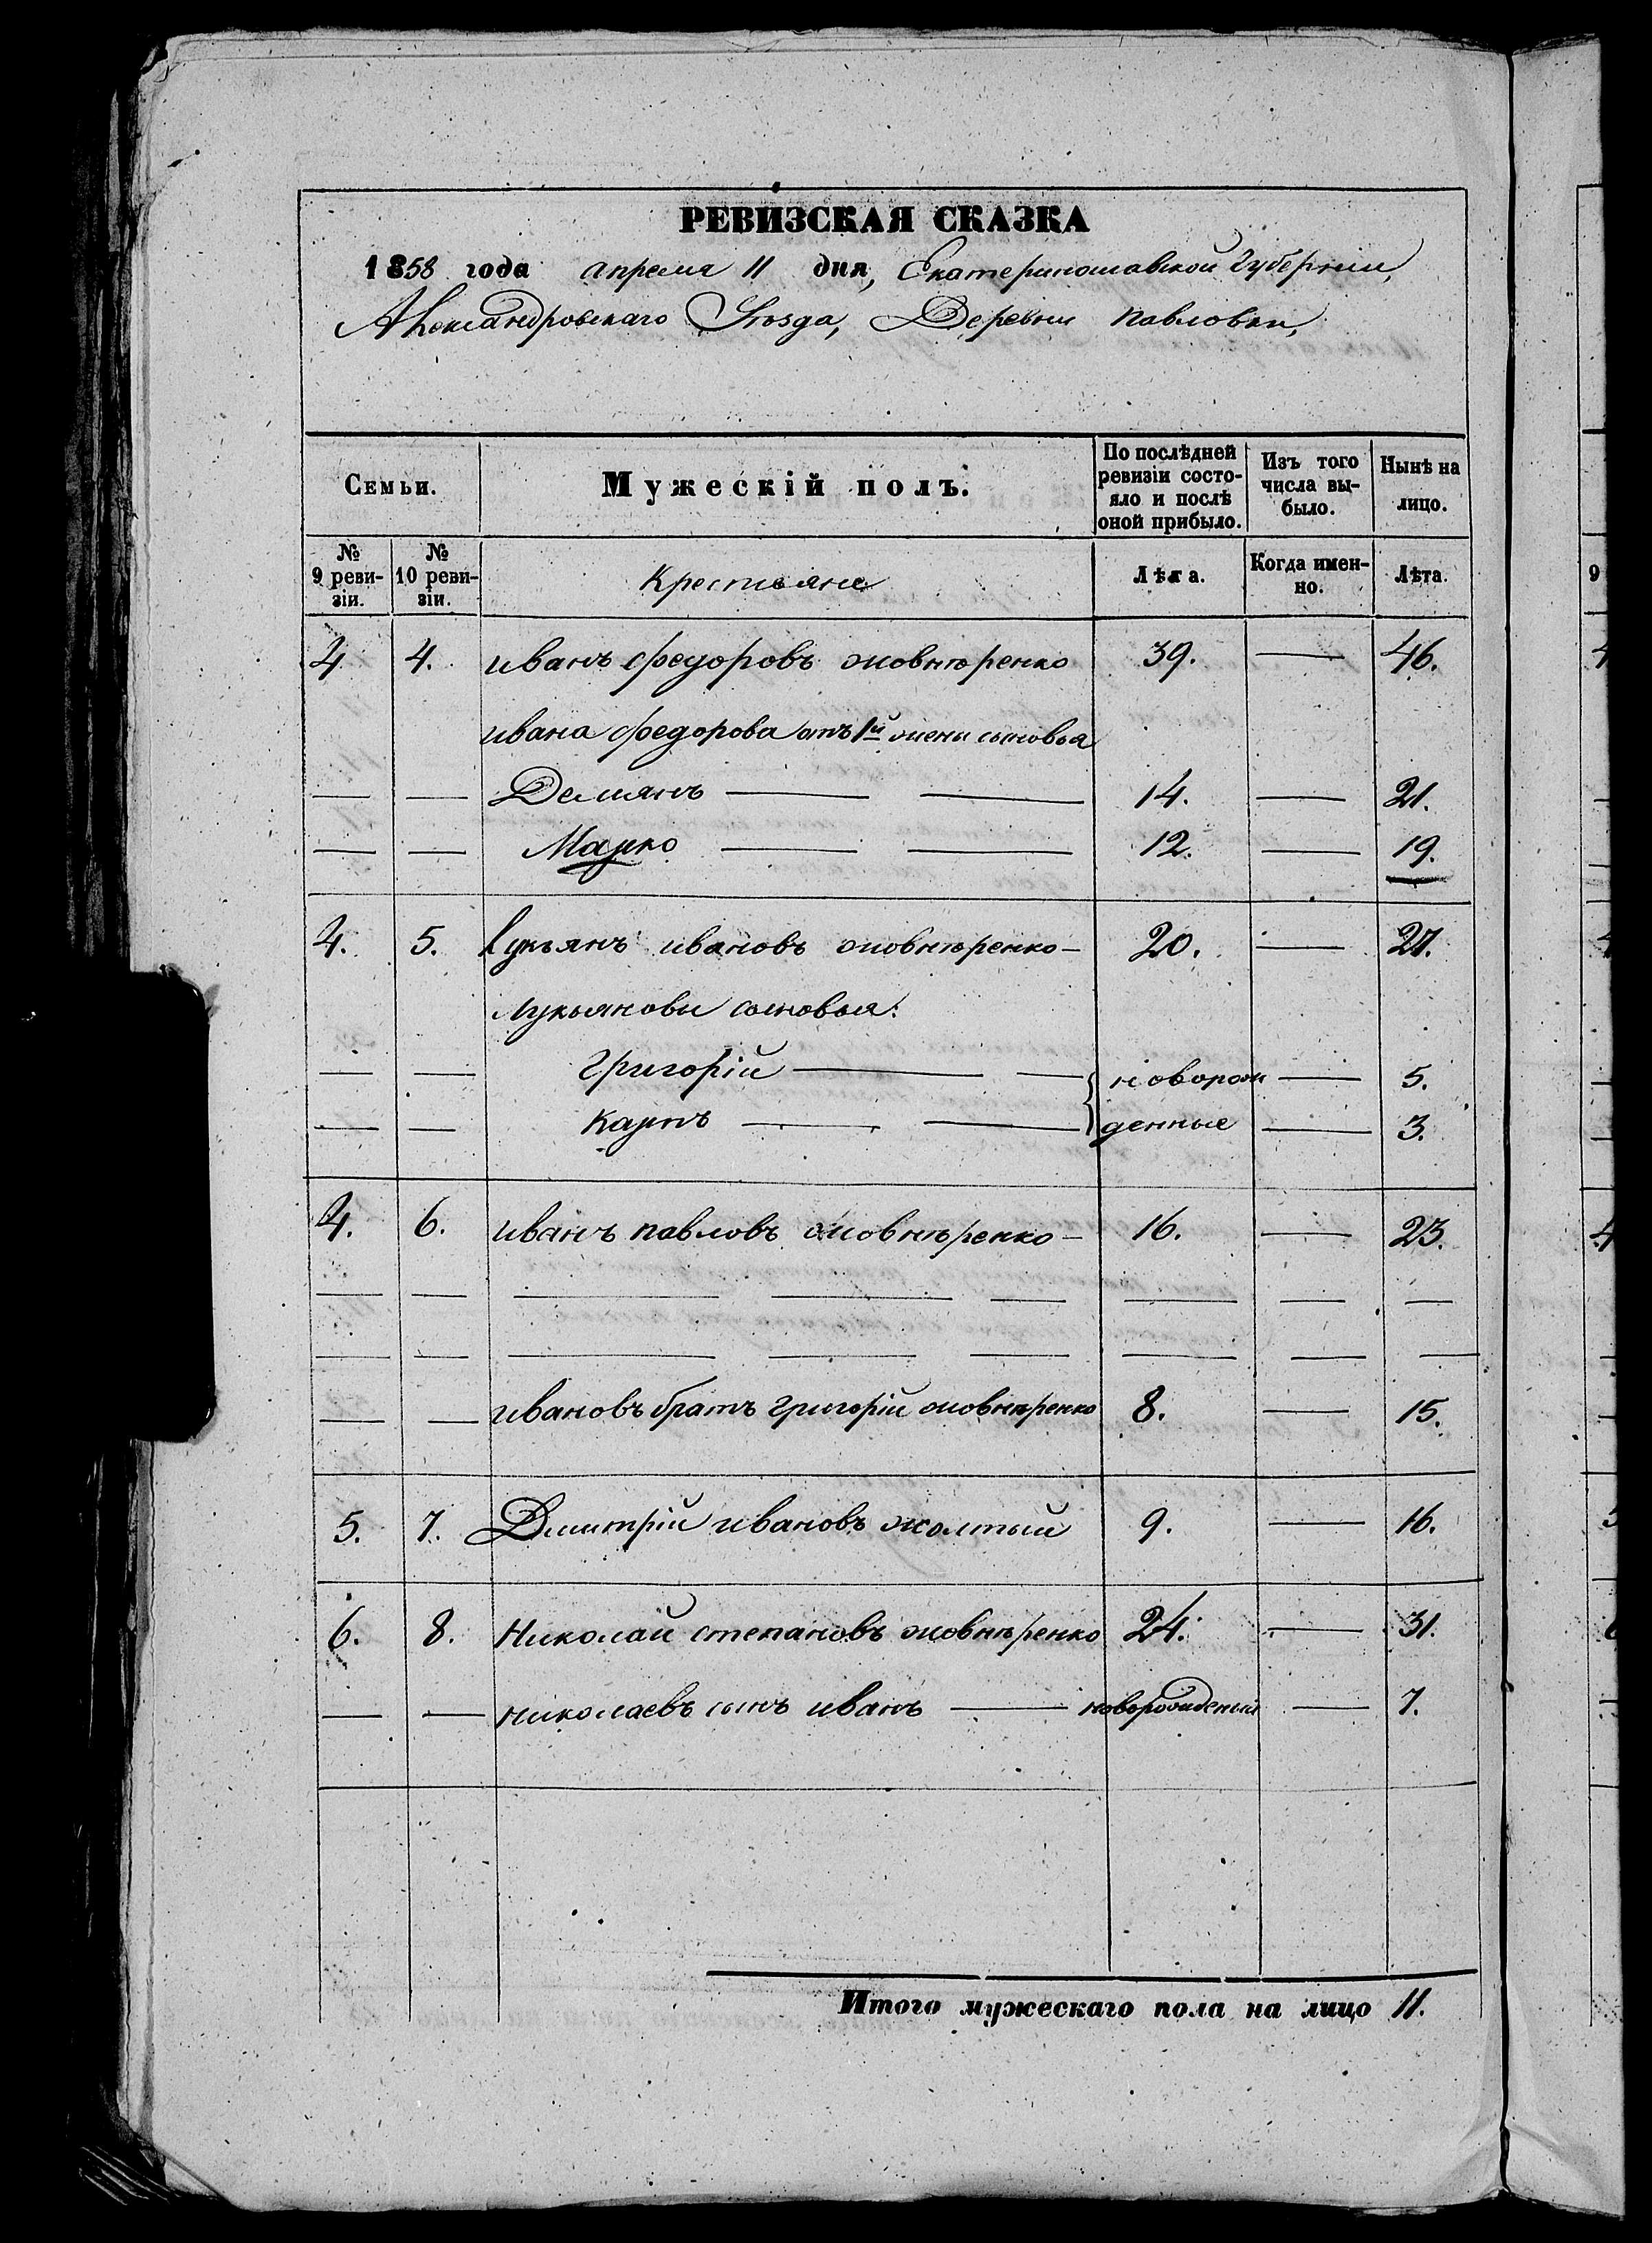 РЕВИЗСКАЯ СКАЗКА
1858 года апреля 11 дня, Екатеринославской Губерніи,
Александровскаго Уѣзда, Деревни Павловки,
Семьи. Мужескій полъ. По послѣдней ревизіи состояло и послѣ оной прибыло. Изъ того числа выбыло. Нынѣ на лицо.
№ 9 ревизіи. № 10 ревизіи. Крестьяне Лѣта. Когда именно. Лѣта.
4 4. иванъ федоровъ жовнѣренко 39. — 46.
ивана федорова отъ 1й жены сыновья
— — Демянъ — — 14. — 21.
— — Марко — — 12. — 19.
4. 5. Лукьянъ ивановъ жовнѣренко — 20. — 27.
Лукьяновы сыновья:
— — Григорій — — новорож — 5.
— — Карпъ — — денные — 3.
4. 6. иванъ павловъ жовнѣренко — 16. — 23.
— — — — — — — —
— — — — — — — —
— — ивановъ братъ григорій жовнѣренко 8. — 15.
5. 7. Дмитрій ивановъ жолтый 9. — 16.
6. 8. Николай степановъ жовнѣренко 24. — 31.
— — николаевъ сынъ иванъ — новорожденый — 7.
Итого мужескаго пола на лицо 11.